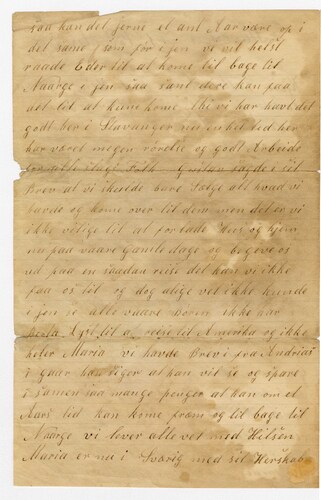 saa kan det gerne et ant Aar være op i
det same som før igen vi vil helst
raade Eder til at kome til bage til
Naarge igen saa sant dere kan faa
det til at kune kome thi vi har havt det
godt her i Stavanger nu en hel tid her
har været megen rørelse og godt Arbeide
for alle slags Folk Gustav sagde i sit
Brev at vi skulde bare Sælge alt hvad vi
havde og kome over til dem men det er vi
ikke vilige til at forlade Hus og Hjem
nu paa vaare Gamle dage og begive os
ud paa en saadan reise det kan vi ikke
faa os til og dog alige vel ikke kunde
igen se alle vaare Børn ikke har
Lyst til at reise til Amerika og ikke
heler Maria vi havde Brev i fra Andrias
i gaar han siger at han vil se og spare
i samen saa mange penger at han om et
Aars tid kan kome fram og til bage til
Naarge vi lever alle vel med Hilsen
Maria er nu i Svorig med sit Herskab